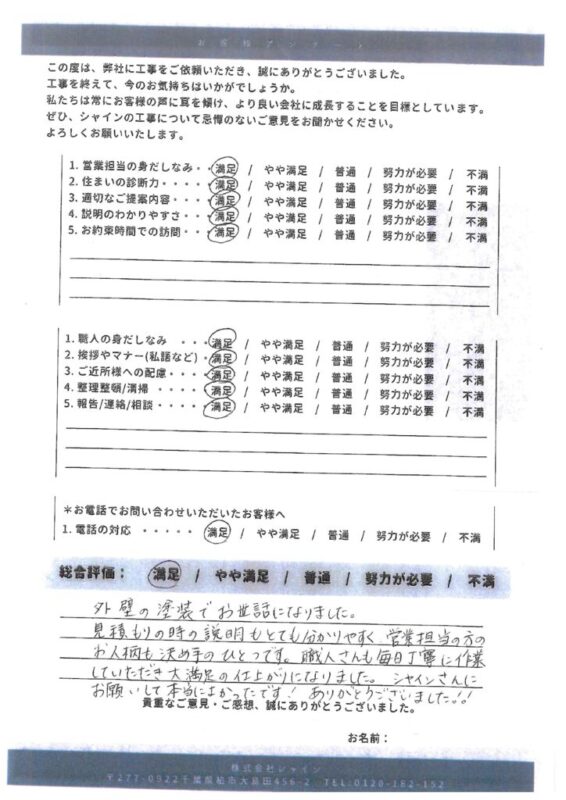 お客様アンケート
この度は、弊社に工事をご依頼いただき、誠にありがとうございました。
工事を終えて、今のお気持ちはいかがでしょうか。
私たちは常にお客様の声に耳を傾け、より良い会社に成長することを目標としています。
ぜひ、シャインの工事について忌憚のないご意見をお聞かせください。
よろしくお願いいたします。
1. 営業担当の身だしなみ・・満足 / やや満足 / 普通 / 努力が必要 / 不満
2. 住まいの診断力・・・・・満足 / やや満足 / 普通 / 努力が必要 / 不満
3. 適切なご提案内容・・・・満足 / やや満足 / 普通 / 努力が必要 / 不満
4. 説明のわかりやすさ・・・満足 / やや満足 / 普通 / 努力が必要 / 不満
5. お約束時間での訪問・・・満足 / やや満足 / 普通 / 努力が必要 / 不満
1. 職人の身だしなみ ・・・満足 / やや満足 / 普通 / 努力が必要 / 不満
2. 挨拶やマナー(私語など)・満足 / やや満足 / 普通 / 努力が必要 / 不満
3. ご近所様への配慮・・・・満足 / やや満足 / 普通 / 努力が必要 / 不満
4. 整理整頓/清掃・・・・・満足 / やや満足 / 普通 / 努力が必要 / 不満
5. 報告/連絡/相談・・・・・満足 / やや満足 / 普通 / 努力が必要 / 不満
＊お電話でお問い合わせいただいたお客様へ
1. 電話の対応 ・・・・・ 満足 / やや満足 / 普通 / 努力が必要 / 不満
総合評価： 満足 / やや満足 / 普通 / 努力が必要 / 不満
外壁の塗装でお世話になりました。
見積もりの時の説明もとても分かりやすく 営業担当の方の
お人柄も決め手のひとつです。職人さんも毎日丁寧に作業
していただき大満足の仕上がりになりました。シャインさんに
お願いして本当によかったです！ ありがとうございました!!
貴重なご意見・ご感想、誠にありがとうございました。
お名前：
株式会社シャイン
〒277-0922千葉県柏市大島田456-2 TEL:0120-182-152